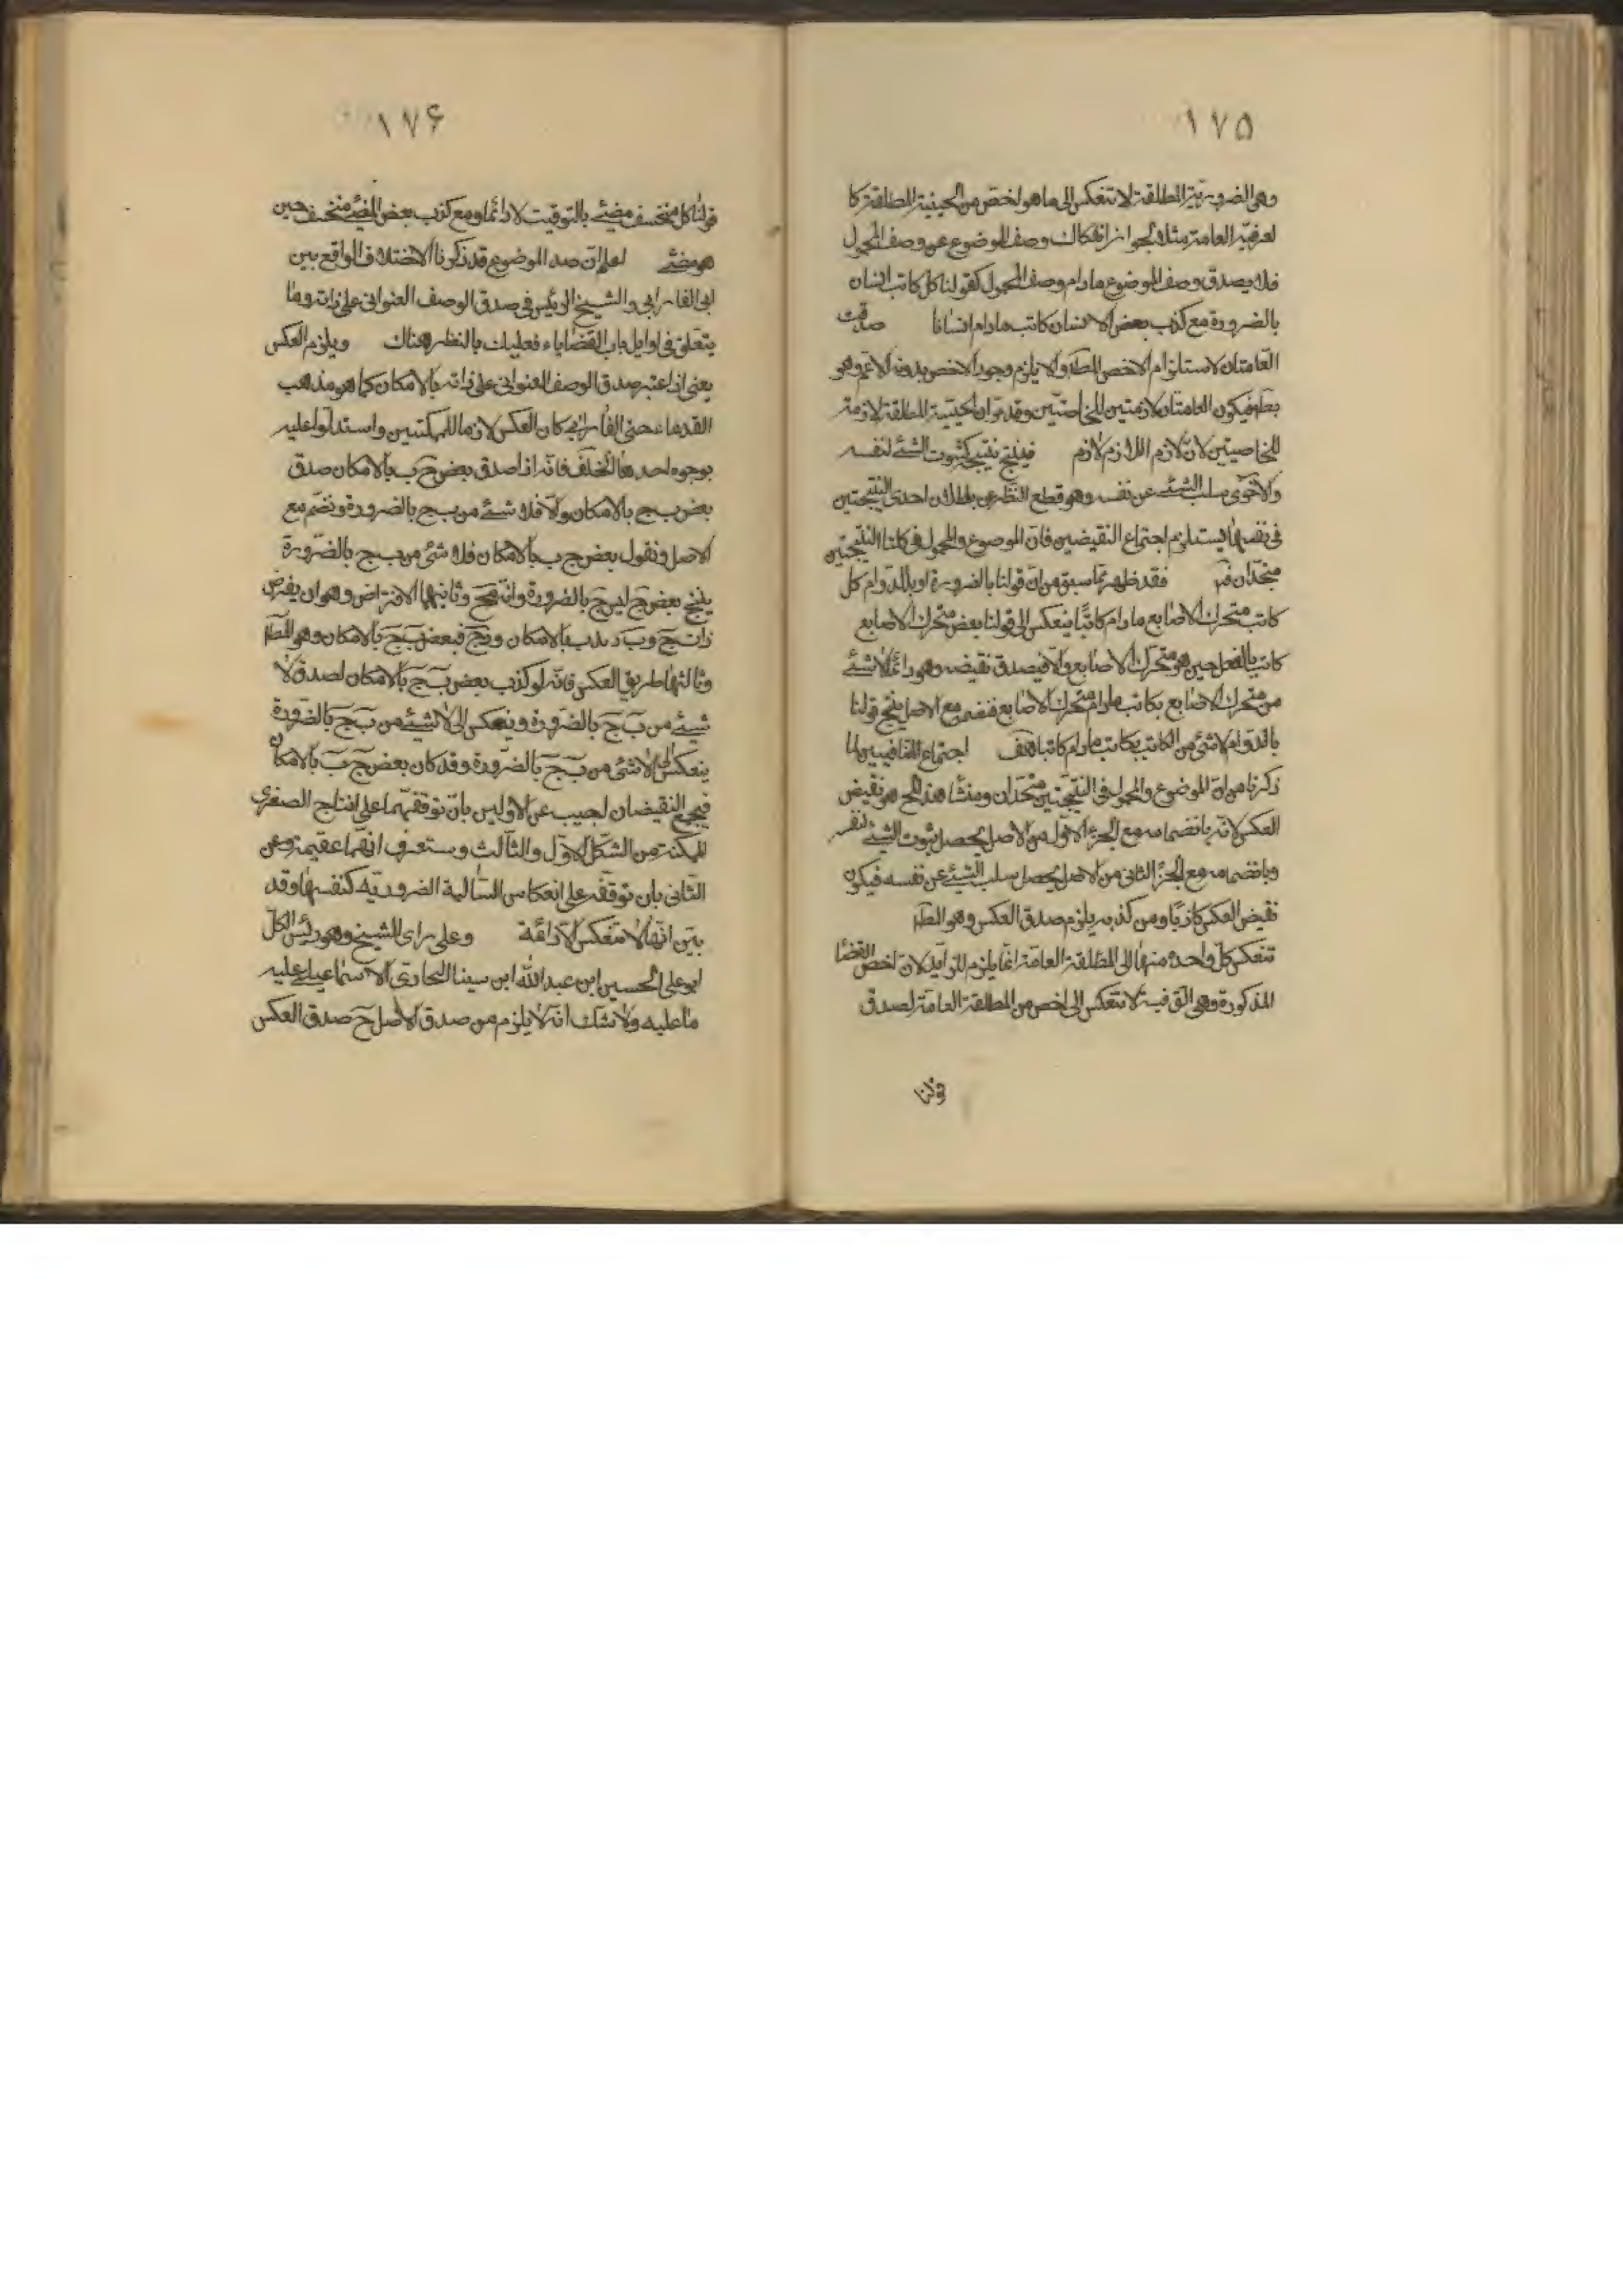 ١٧۵
وهى الضرورية المطلقة لا تنعكس الى ما هو اخص من الحينية المطلقة كا
لعرفية العامة مثلا لجواز انفكاك وصف الموضوع عن وصف المحمول
فلا يصدق وصف الموضوع مادام وصف المحمول كقولنا كل كاتب انسان
بالضرورة مع كذب بعض الانسان كاتب مادام انسانا صدقت
العامتان لاستلزام الاخص المط والا يلزم وجود الاخص بدونه الاعم وهو
بط فيكون العامتان لازمتين للخاصتين وقد مر ان الحينية المطلقة لازمة
للخاصيتين لان لازم اللازم لازم فينتج نتيجة كثبوت الشئ لنفسه
والاخرى سلب الشئ عن نفسه وهو قطع النظر عن بطلان احدى النتيجتين
فى نفسها يستلزم اجتماع النقيضين فان الموضوع والمحمول فى كلتا النتيجتين
متحدان فقد ظهر مما سبق من ان قولنا بالضرورة او بالدوام كل
كاتب متحرك الاصابع مادام كاتبا ينعكس الى قولنا بعض متحرك الاصابع
كاتب بالفعل حين هو متحرك الاصابع والا فيصدق نقيضه وهو دائما لا شئ
من متحرك الاصابع بكاتب مادام متحرك الاصابع فنضم مع الاصل ينتج قولنا
بالدوام لا شئ من الكاتب بكاتب مادام كاتبا هف اجتماع المتنافيين لما
ذكرنا من ان الموضوع والمحمول فى النتيجتين متحدان ومنشأ هذا المح هو نقيض
العكس لانه بانضمامه مع الجزء الاول من الاصل يحصل ثبوت الشئ لنفسه
وبانضمامه مع الجزء الثانى من الاصل يحصل سلب الشئ عن نفسه فيكون
نقيض العكس كاذبا ومن كذبه يلزم صدق العكس وهو المط
تنعكس كل واحدة منها الى المطلقة العامة انما يلزم لان اخص القضا
المذكورة وهى الوقتية لا تنعكس الى اخص من المطلقة العامة لصدق
قولنا
١٧۶
قولنا كل منخسف مضئ بالتوقيت لا دائما ومع كذب بعض المضئ منخسف حين
هو مضئ اعلم ان صدق الموضوع قد ذكرنا الاختلاف الواقع بين
ابى الفارابى والشيخ الرئيس فى صدق الوصف العنوانى على ذات وما
يتعلق فى اوايل باب القضايا فعليك بالنظر هناك ويلزم العكس
يعنى اذا اعتبر صدق الوصف العنوانى على ذاته بالامكان كما هو مذهب
القدماء حتى الفارابى كان العكس لازما للممكنتين واستدلوا عليه
بوجوه احدها الخلف فانه اذا صدق بعض ج ب بالامكان صدق
بعض ب ج بالامكان والا فلا شئ من ب ج بالضرورة ونضم مع
الاصل ونقول بعض ج ب بالامكان فلا شئ من ب ج بالضرورة
ينتج بعض ج ليس ج بالضرورة وانه مح وثانيها الافتراض وهو ان يفرض
ذات ج وب د بالامكان و د ج فبعض ب ج بالامكان وهو المط
وثالثها طريق العكس فانه لو كذب بعض ب ج بالامكان لصدق لا
شئ من ب ج بالضرورة وينعكس الى لا شئ من ب ج بالضرورة
ينعكس الى لا شئ من ب ج بالضرورة وقد كان بعض ج ب بالامكان
فيجمع النقيضان اجيب عن الاولين بان توقفهما على انتاج الصغرى
الممكنة من الشكل الاول والثالث وستعرف انهما عقيمة وعن
الثانى بان توقفه على انعكاس السالبة الضرورية كنفسها وقد
بين انها لا تنعكس الا دائمة وعلى راى الشيخ وهو رئيس الكل
ابو على الحسين ابن عبد الله ابن سينا البخارى الاسماعيلى عليه
ما عليه ولا شك انه لا يلزم من صدق الاصل ح صدق العكس